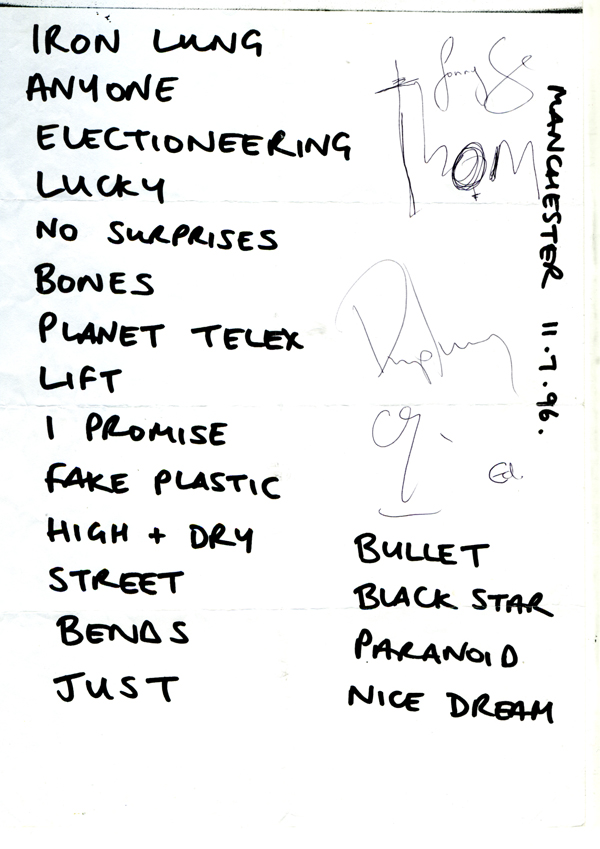 IRON LUNG
ANYONE
ELECTIONEERING
LUCKY
NO SURPRISES
BONES
PLANET TELEX
LIFT
I PROMISE
FAKE PLASTIC
HIGH + DRY
STREET
BENDS
JUST
BULLET
BLACK STAR
PARANOID
NICE DREAM
MANCHESTER 11.7.96.
Jonny
Thom
Ed.